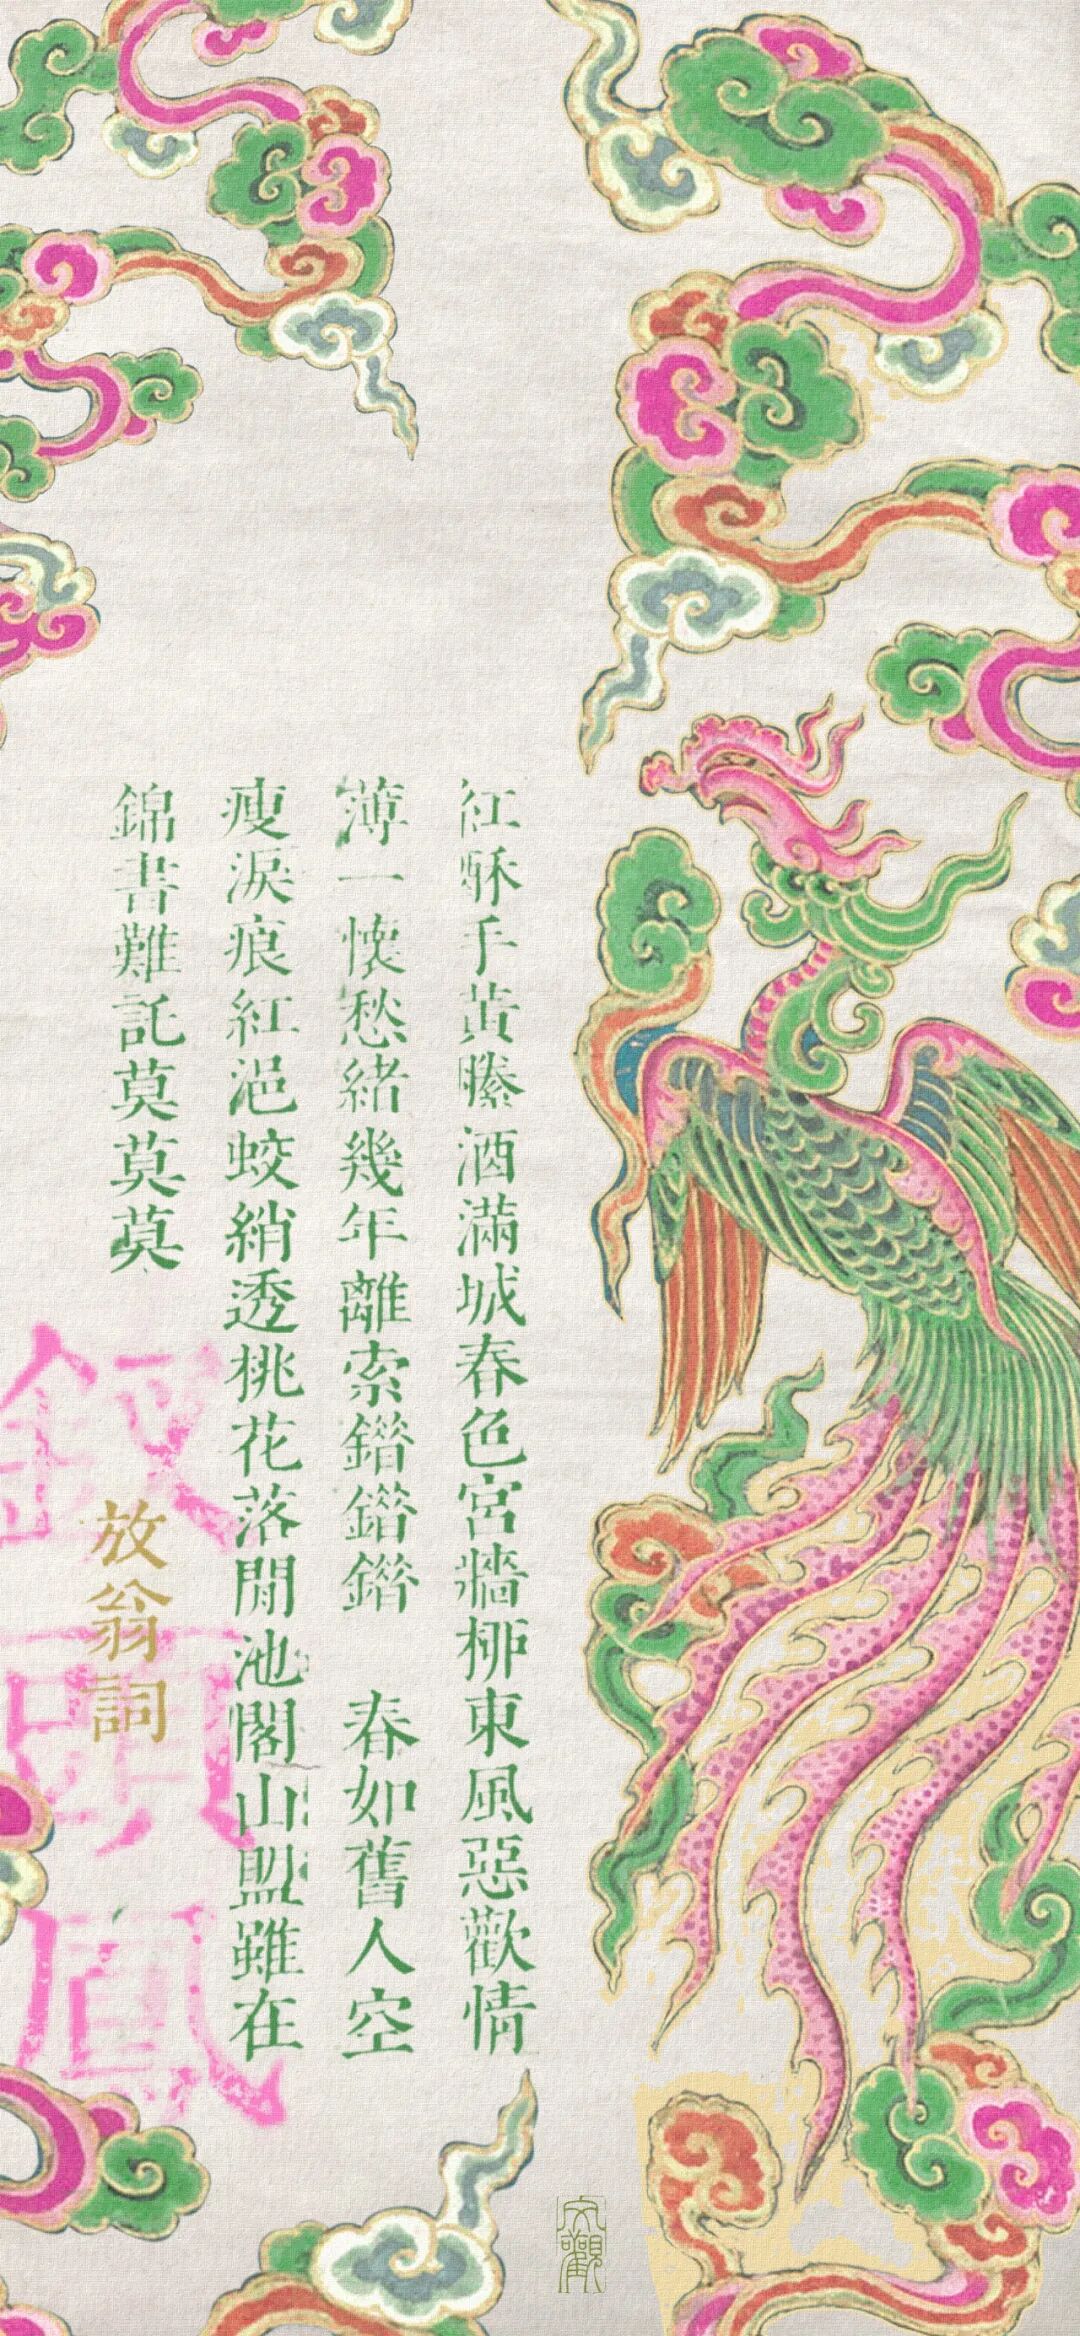 紅酥手黃縢酒滿城春色宮牆柳東風惡歡情
薄一懷愁緒幾年離索錯錯錯 春如舊人空
瘦淚痕紅浥蛟綃透桃花落閒池閣山盟雖在
錦書難託莫莫莫
放翁詞
釵頭鳳